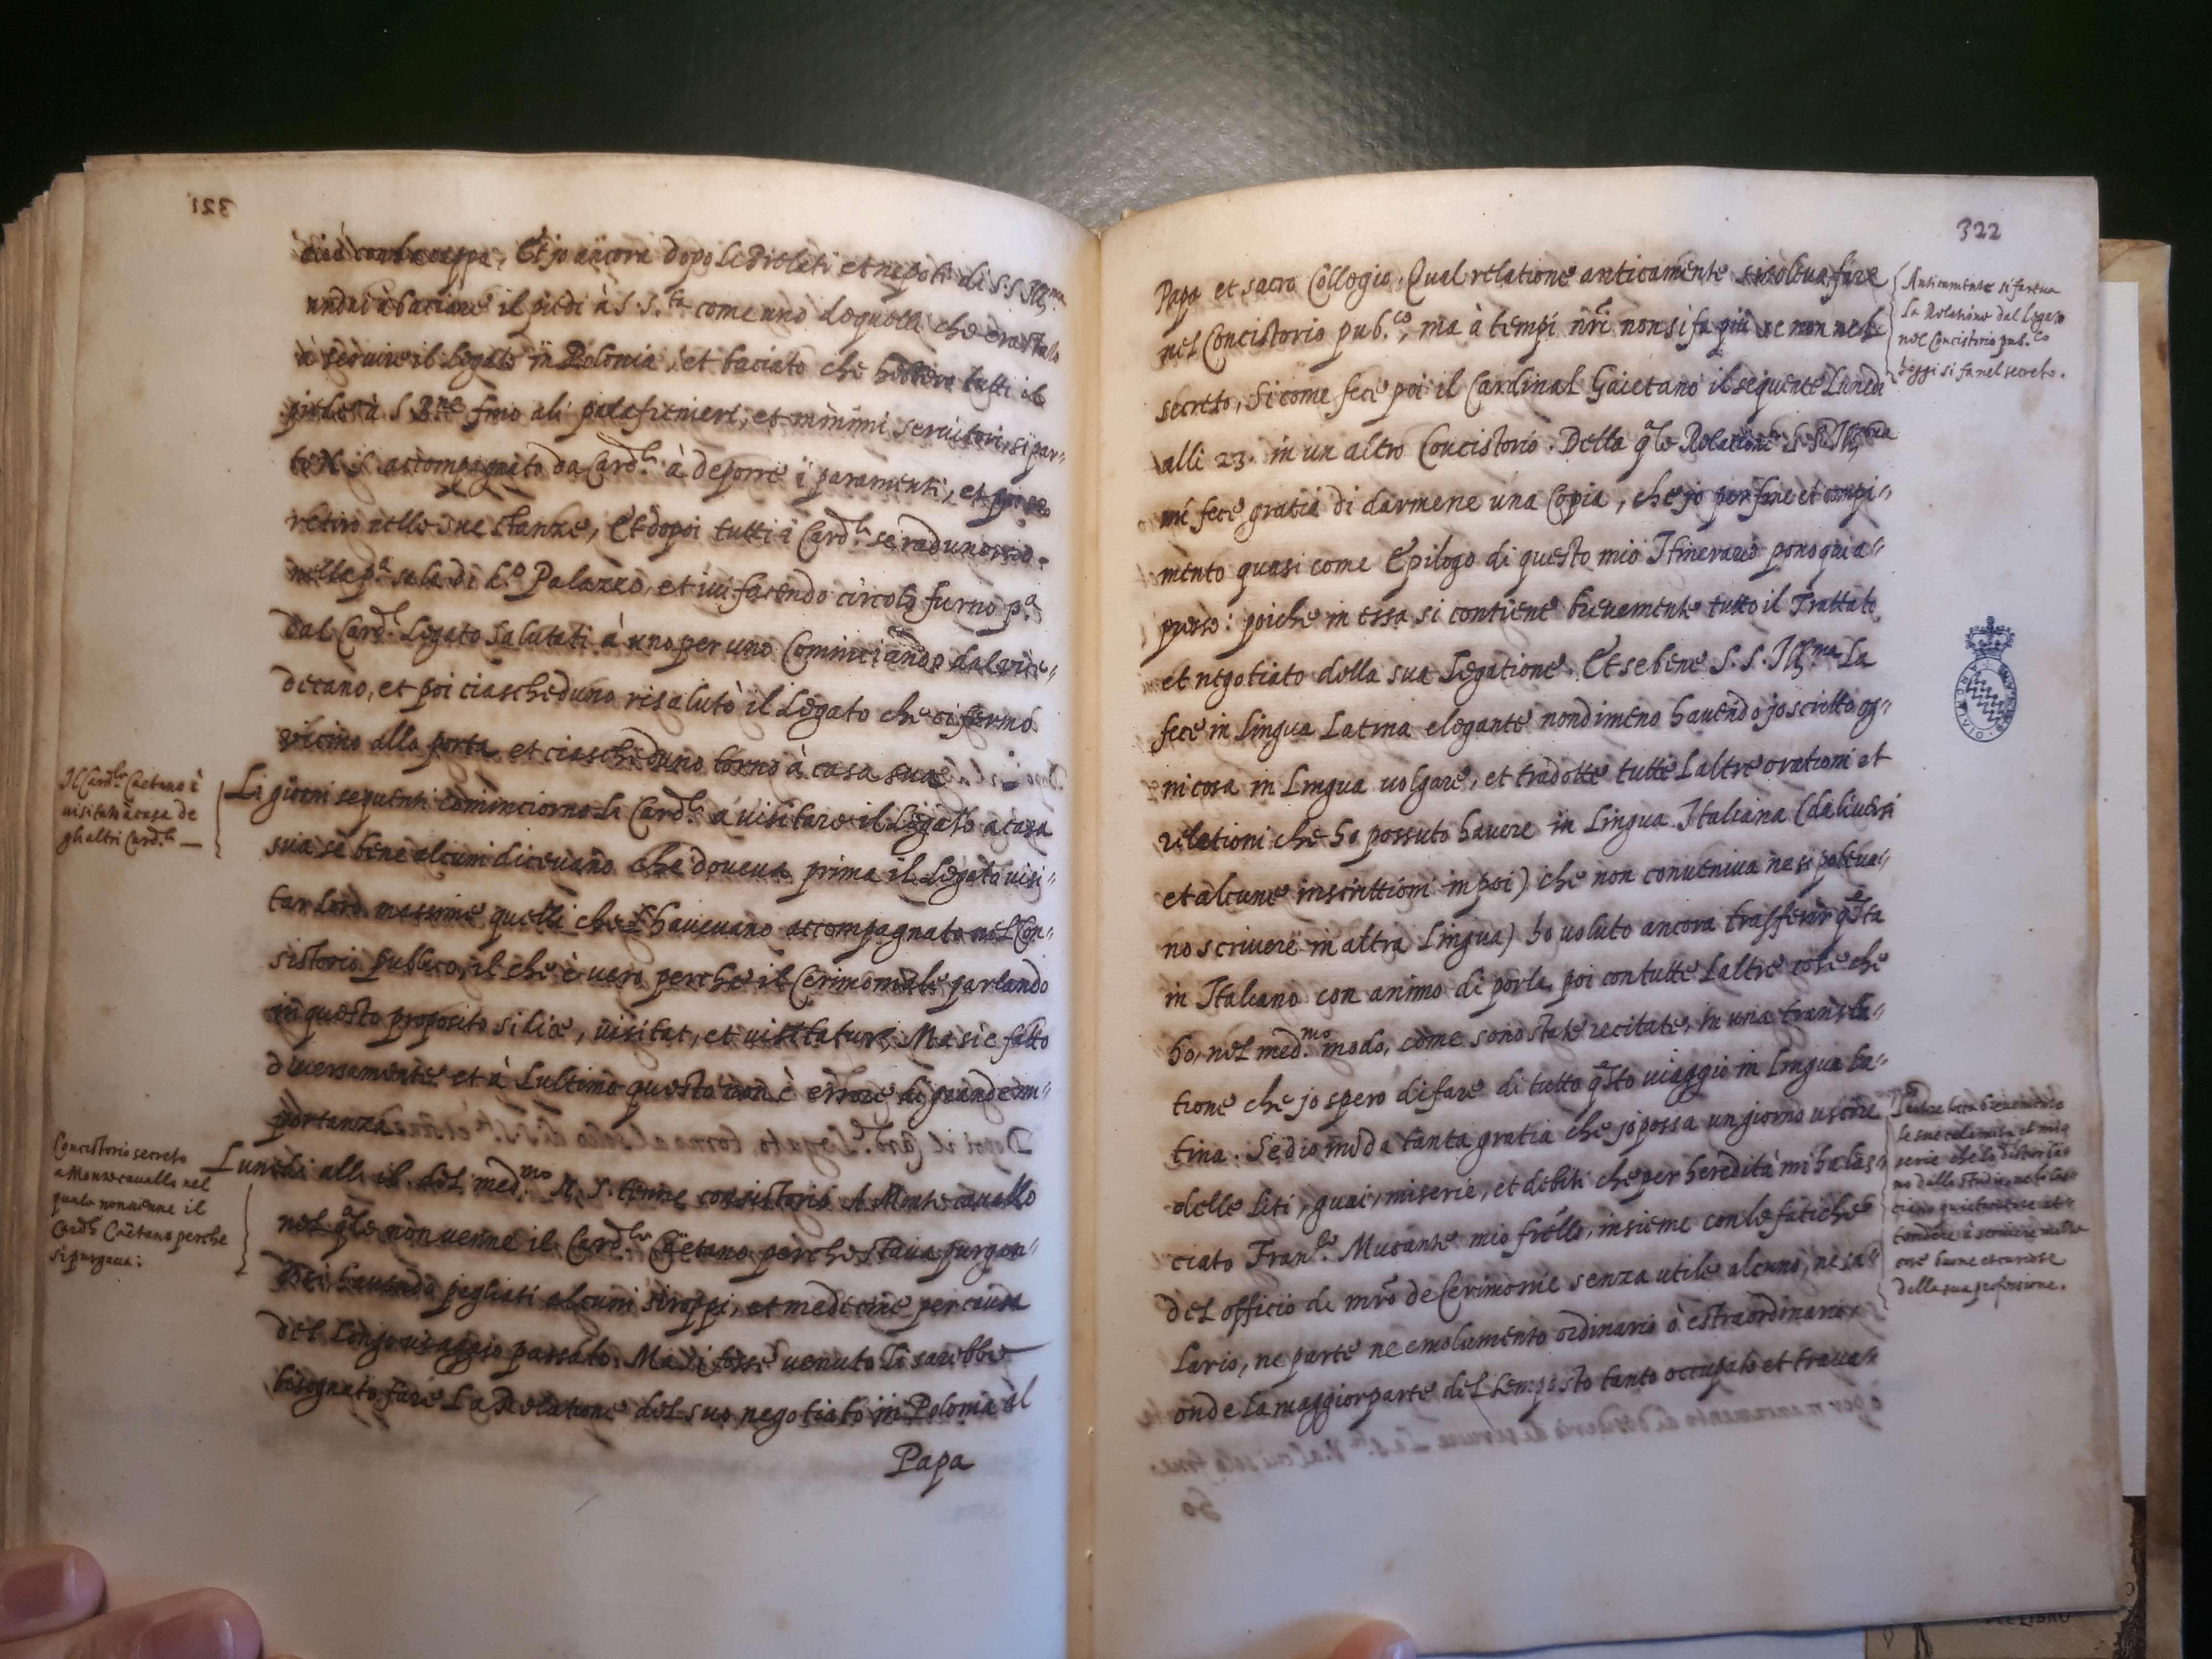 321
cioè con la cappa, Et jo ancora dopo li Prelati et nepoti di S. S. Ill.ma
andai à baciare il piedi à S. S.tà come uno di quelli che era stato
à seguire il Legato in Polonia, et baciato che hebbero tutti il
piede à S. B.ne fino ali palafrenieri, et minimi servitori, si par-
tì N. S. accompagnato da Card.li à deporre i paramenti, et poi se
retirò nelle sue stanze, Et dopoi tutti i Card.li se radunorno
nella p.a sala di d.o Palazzo, et ivi facendo circolo furno p.a
dal Card.l Legato salutati à uno per uno Cominciando dal vice-
decano, et poi ciascheduno risalutò il Legato che si fermò
vicino alla porta et ciascheduno tornò à casa sua
Il Card.le Caetano è
visitato à casa de
gli altri Card.li —
Li giorni seguenti cominciorno li Card.li à visitare il Legato à casa
sua se bene alcuni dicevano che doveva prima il Legato visi-
tar loro massime quelli che l'havevano accompagnato nel Con-
sistorio publico, il che è vero perche il Cerimoniale parlando
in questo proposito si dice, visitat, et visitatur, Ma si è fatto
diversamente et à l'ultimo questo non è errore di grande im-
portanza
Concistorio secreto
a Montecavallo nel
quale non venne il
Card.le Caetano perche
si purgava:
Lunedì alli 16. del med.mo N. S. tenne consistorio A Monte cavallo
nel q.le non venne il Card.le Caetano perche stava purgan-
dosi havendo pigliati alcuni siroppi, et medicine per causa
del longo viaggio passato. Ma si fosse venuto li sarebbe
bisognato fare La Relatione del suo negotiato in Polonia al
Papa
322
Papa et sacro Collegio, Qual relatione anticamente si soleva fare
nel Concistorio pub.co, ma à tempi nri non si fa più se non nel
secreto, Si come fece poi il Cardinal Gaietano il sequente Lunedi
alli 23. in un altro Concistorio. Della q.le Relatione S. S. Ill.ma
mi fece gratia di darmene una Copia, che jo per fine et compi-
mento quasi come Epilogo di questo mio Itinerario pono qui a-
presso: poiche in essa si contiene brevemente tutto il Trattato
et negotiato della sua Legatione. Et se bene S. S. Ill.ma La
fece in Lingua Latina elegante nondimeno havendo jo scritto og-
ni cosa in Lingua volgare, et tradotte tutte L'altre orationi et
relationi che ho possuto havere in Lingua Italiana (da li versi
et alcune inscrittioni in poi) che non conveniva ne si poteva-
no scrivere in altra Lingua) ho voluto ancora trasferir q.sta
in Italiano con animo di porla poi con tutte L'altre cose che
ho, nel med.mo modo, come sono state recitate, in una transla-
tione che jo spero di fare di tutto q.sto viaggio in Lingua La-
tina. Se dio mi dà tanta gratia che jo possa un giorno uscire
delle Liti, guai, miserie, et debiti che per heredità mi ha las-
ciato Fran.co Mucante mio frello, insieme con le fatiche
del officio di mrõ de Cerimonie senza utile alcuno, ne sa-
Lario, ne parte ne emolumento ordinario ò estraordinario,
onde la maggior parte del tempo sto tanto occupato et trava-
Anticamente si faceva
La Relatione dal Legato
nel Concistorio pub.co
hoggi si fa nel secreto.
le sue calamità et mi-
serie che lo disturba-
no dalli studii, ne lo las-
ciano
tendere à scrivere molte
cose buone et curiose
della sua professione.